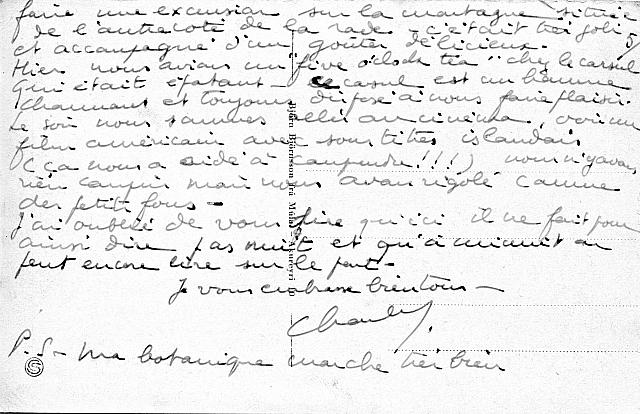 faire une excursion sur la montagne située
de l'autre coté de la rade c'était très joli
et accompagné d'un goûter délicieux.
Hier nous avions un "five o'clock tea" chez le consul
qui était épatant - ce consul est un homme
charmant et toujours disposé à nous faire plaisir
Le soir nous sommes allés au cinéma, voir un
film américain avec sous titres islandais
(ça nous a aidé à comprendre!!!) nous n'y avons
rien compris mais nous avons rigolé comme
des petits fous -
J'ai oublié de vous dire qu'ici il ne fait pour
ainsi dire pas nuit et qu'à minuit on
peut encore lire sur le pont -
Je vous embrasse bien tous -
Charles.
P.S - Ma botanique marche très bien